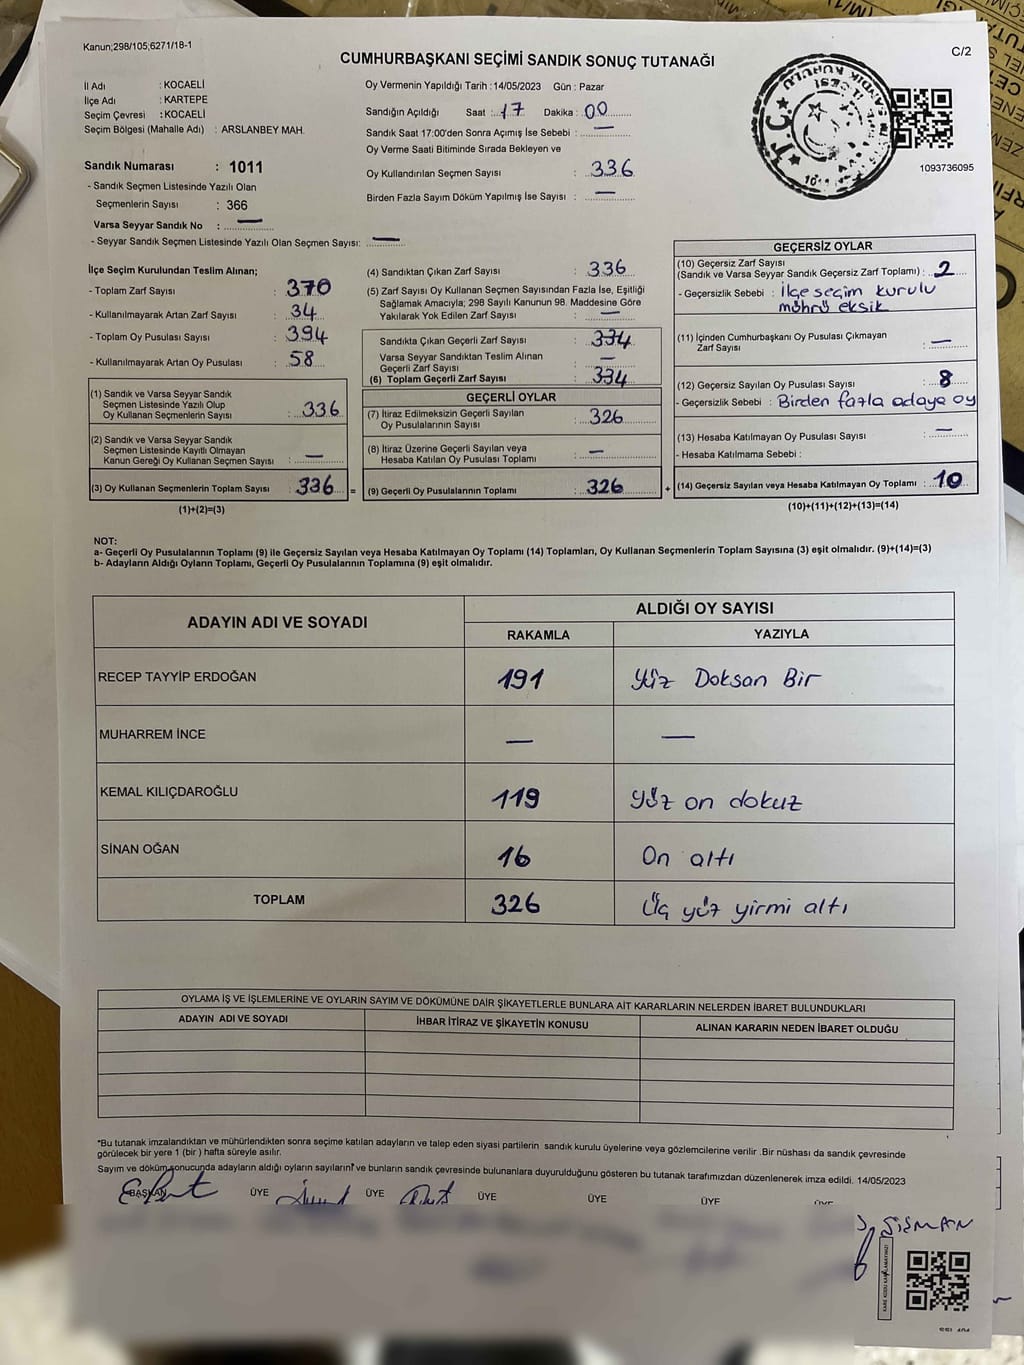 Kanun;298/105;6271/18-1
CUMHURBAŞKANI SEÇİMİ SANDIK SONUÇ TUTANAĞI
C/2
İl Adı : KOCAELİ
İlçe Adı : KARTEPE
Seçim Çevresi : KOCAELİ
Seçim Bölgesi (Mahalle Adı) : ARSLANBEY MAH.
Sandık Numarası : 1011
- Sandık Seçmen Listesinde Yazılı Olan
Seçmenlerin Sayısı : 366
Varsa Seyyar Sandık No : —
- Seyyar Sandık Seçmen Listesinde Yazılı Olan Seçmen Sayısı: —
Oy Vermenin Yapıldığı Tarih :14/05/2023 Gün : Pazar
Sandığın Açıldığı Saat : 17 Dakika : 00
Sandık Saat 17:00'den Sonra Açımış İse Sebebi : —
Oy Verme Saati Bitiminde Sırada Bekleyen ve
Oy Kullandırılan Seçmen Sayısı : 336
Birden Fazla Sayım Döküm Yapılmış İse Sayısı : —
T.C.
1093736095
İlçe Seçim Kurulundan Teslim Alınan;
- Toplam Zarf Sayısı : 370
- Kullanılmayarak Artan Zarf Sayısı : 34
- Toplam Oy Pusulası Sayısı : 394
- Kullanılmayarak Artan Oy Pusulası : 58
(1) Sandık ve Varsa Seyyar Sandık
Seçmen Listesinde Yazılı Olup
Oy Kullanan Seçmenlerin Sayısı : 336
(2) Sandık ve Varsa Seyyar Sandık
Seçmen Listesinde Kayıtlı Olmayan
Kanun Gereği Oy Kullanan Seçmen Sayısı : —
(3) Oy Kullanan Seçmenlerin Toplam Sayısı : 336 =
(1)+(2)=(3)
(4) Sandıktan Çıkan Zarf Sayısı : 336
(5) Zarf Sayısı Oy Kullanan Seçmen Sayısından Fazla İse, Eşitliği
Sağlamak Amacıyla; 298 Sayılı Kanunun 98. Maddesine Göre
Yakılarak Yok Edilen Zarf Sayısı : —
Sandıkta Çıkan Geçerli Zarf Sayısı : 334
Varsa Seyyar Sandıktan Teslim Alınan
Geçerli Zarf Sayısı : —
(6) Toplam Geçerli Zarf Sayısı : 334
GEÇERLİ OYLAR
(7) İtiraz Edilmeksizin Geçerli Sayılan
Oy Pusulalarının Sayısı : 326
(8) İtiraz Üzerine Geçerli Sayılan veya
Hesaba Katılan Oy Pusulası Toplamı : —
(9) Geçerli Oy Pusulalarının Toplamı : 326 +
GEÇERSİZ OYLAR
(10) Geçersiz Zarf Sayısı
(Sandık ve Varsa Seyyar Sandık Geçersiz Zarf Toplamı) : 2
- Geçersizlik Sebebi : İlçe seçim kurulu
mührü eksik
(11) İçinden Cumhurbaşkanı Oy Pusulası Çıkmayan
Zarf Sayısı : —
(12) Geçersiz Sayılan Oy Pusulası Sayısı : 8
- Geçersizlik Sebebi : Birden fazla adaya oy
(13) Hesaba Katılmayan Oy Pusulası Sayısı : —
- Hesaba Katılmama Sebebi :
(14) Geçersiz Sayılan veya Hesaba Katılmayan Oy Toplamı : 10
(10)+(11)+(12)+(13)=(14)
NOT:
a- Geçerli Oy Pusulalarının Toplamı (9) ile Geçersiz Sayılan veya Hesaba Katılmayan Oy Toplamı (14) Toplamları, Oy Kullanan Seçmenlerin Toplam Sayısına (3) eşit olmalıdır. (9)+(14)=(3)
b- Adayların Aldığı Oyların Toplamı, Geçerli Oy Pusulalarının Toplamına (9) eşit olmalıdır.
ADAYIN ADI VE SOYADI
ALDIĞI OY SAYISI
RAKAMLA YAZIYLA
RECEP TAYYİP ERDOĞAN 191 Yüz Doksan Bir
MUHARREM İNCE — —
KEMAL KILIÇDAROĞLU 119 yüz on dokuz
SİNAN OĞAN 16 On altı
TOPLAM 326 Üç yüz yirmi altı
OYLAMA İŞ VE İŞLEMLERİNE VE OYLARIN SAYIM VE DÖKÜMÜNE DAİR ŞİKAYETLERLE BUNLARA AİT KARARLARIN NELERDEN İBARET BULUNDUKLARI
ADAYIN ADI VE SOYADI İHBAR İTİRAZ VE ŞİKAYETİN KONUSU ALINAN KARARIN NEDEN İBARET OLDUĞU
*Bu tutanak imzalandıktan ve mühürlendikten sonra seçime katılan adayların ve talep eden siyasi partilerin sandık kurulu üyelerine veya gözlemcilerine verilir .Bir nüshası da sandık çevresinde
görülecek bir yere 1 (bir ) hafta süreyle asılır.
Sayım ve döküm sonucunda adayların aldığı oyların sayılarını ve bunların sandık çevresinde bulunanlara duyurulduğunu gösteren bu tutanak tarafımızdan düzenlenerek imza edildi. 14/05/2023
BAŞKAN ÜYE ÜYE ÜYE ÜYE ÜYE ÜYE
ŞİŞMAN
KARE KODU KARALAMAYINIZ!